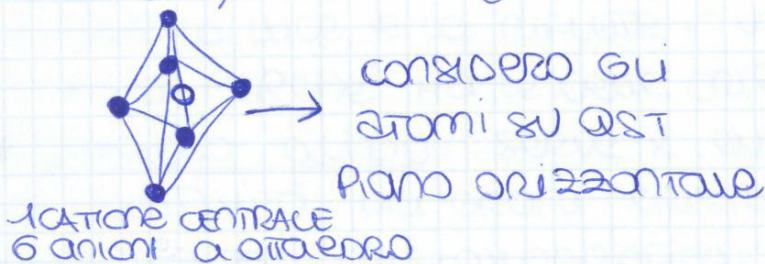 CONSIDERO GLI
ATOMI SU QST
PIANO ORIZZONTALE
1 CATIONE CENTRALE
6 ANIONI A OTTAEDRO